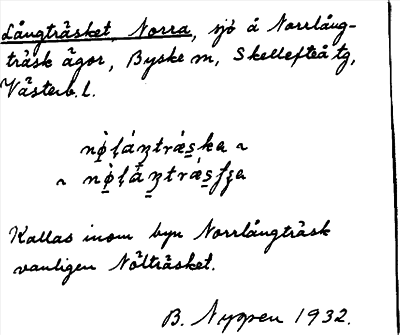 Långträsket, Norra, sjö å Norrlång-
träsk ägor, Byske sn, Skellefteå tg,
Västerb. l.
Kallas inom byn Norrlångträsk
vanligen Nölträsket.
B. Nyppen 1932.